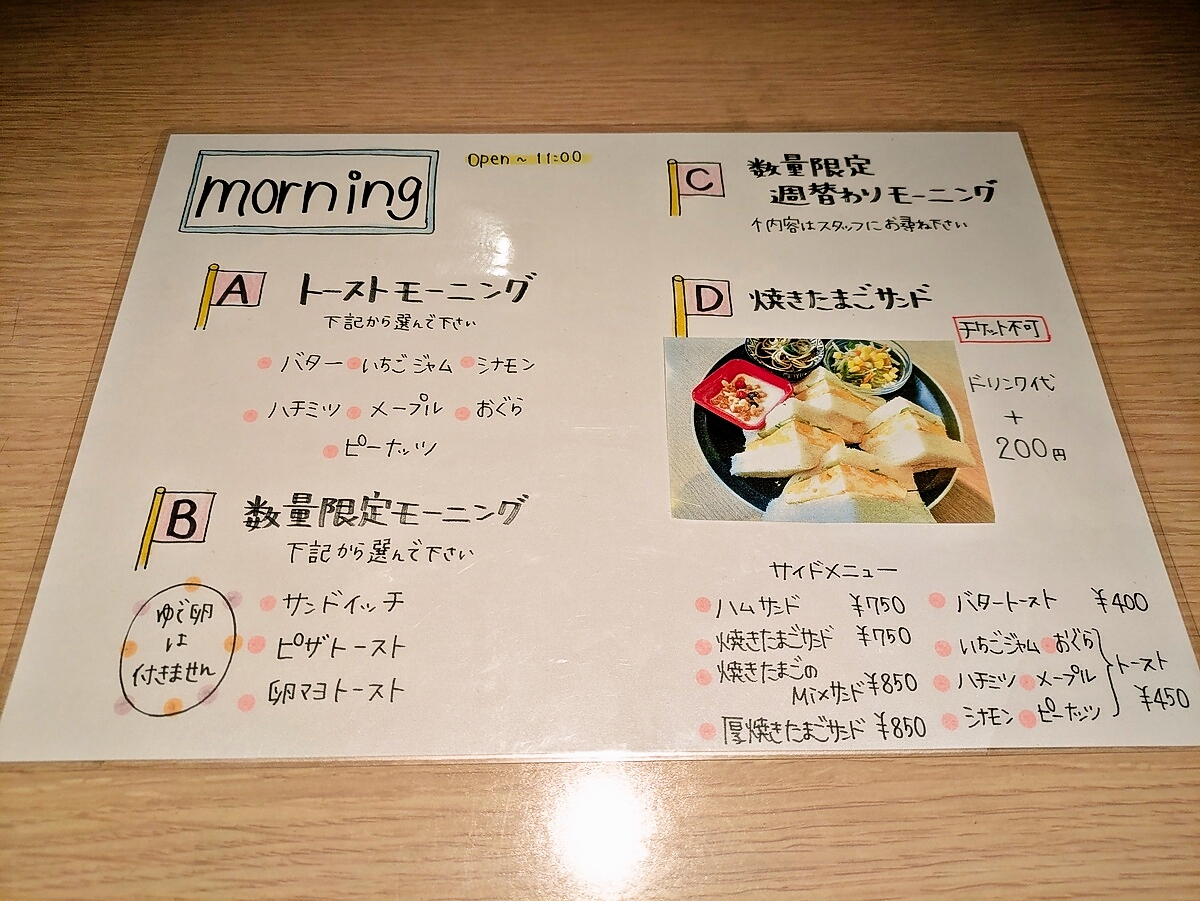 morning
Open ~ 11:00
A トーストモーニング
下記から選んで下さい
バター いちごジャム シナモン
ハチミツ メープル おぐら
ピーナッツ
B 数量限定モーニング
下記から選んで下さい
ゆで卵
は
付きません
サンドイッチ
ピザトースト
卵マヨトースト
C 数量限定
週替わりモーニング
↑内容はスタッフにお尋ね下さい
D 焼きたまごサンド
チケット不可
ドリンク代
+
200円
サイドメニュー
ハムサンド ¥750
焼きたまごサンド ¥750
焼きたまごの
Mixサンド ¥850
厚焼きたまごサンド ¥850
バタートースト ¥400
いちごジャム おぐら
ハチミツ メープル
シナモン ピーナッツ
トースト
¥450